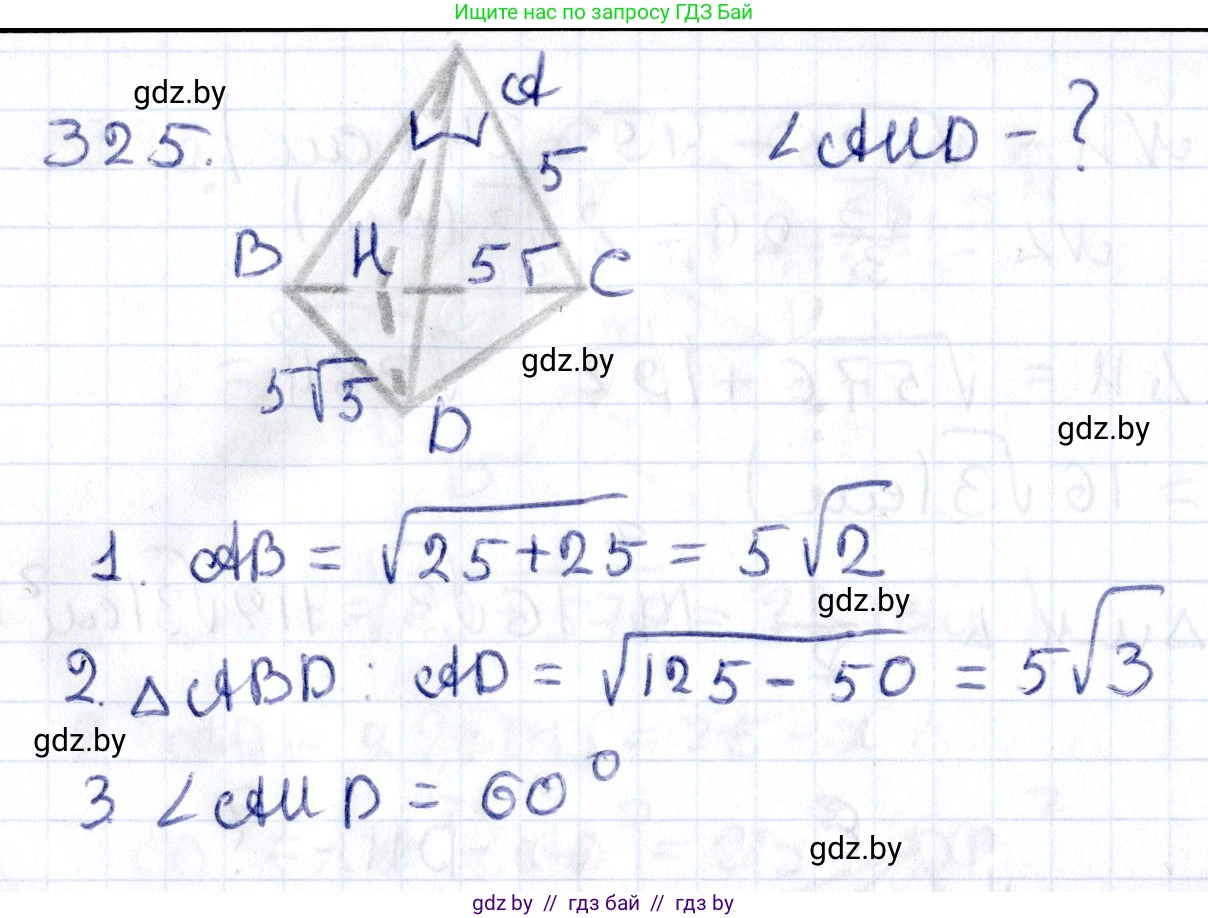 Ищите нас по запросу ГДЗ Бай
gdz.by
325.
A
∠AHD - ?
5
B
H
5
C
gdz.by
5√5
D
gdz.by
1. AB = √25+25 = 5√2
gdz.by
2. △ABD : AD = √125 - 50 = 5√3
gdz.by
3 ∠AHD = 60°
gdz.by
gdz.by // гдз бай // гдз by